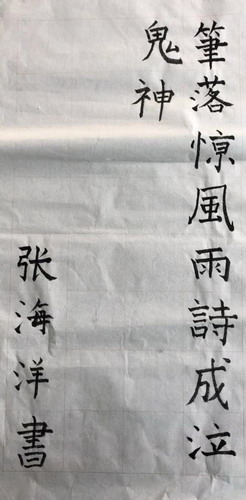 筆落惊風雨詩成泣
鬼神
张海洋書